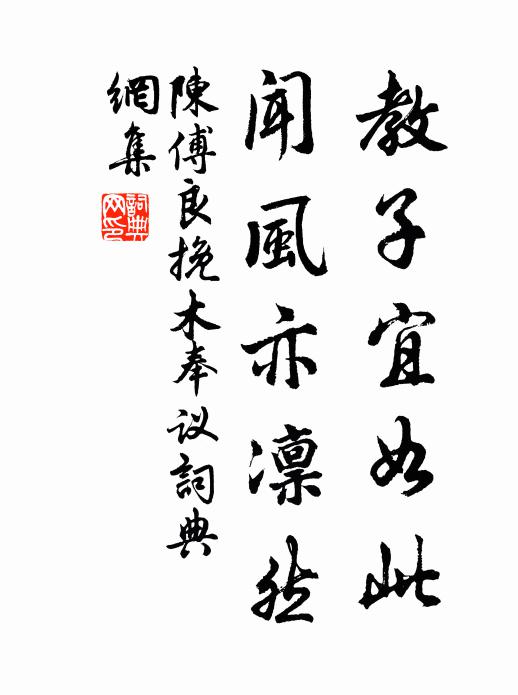 教子宜如此
聞風亦凛然
陳傅良挽木奉议詞典
網集
詞典
网印